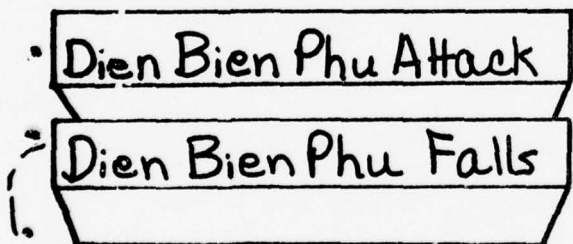 Dien Bien Phu Attack
Dien Bien Phu Falls